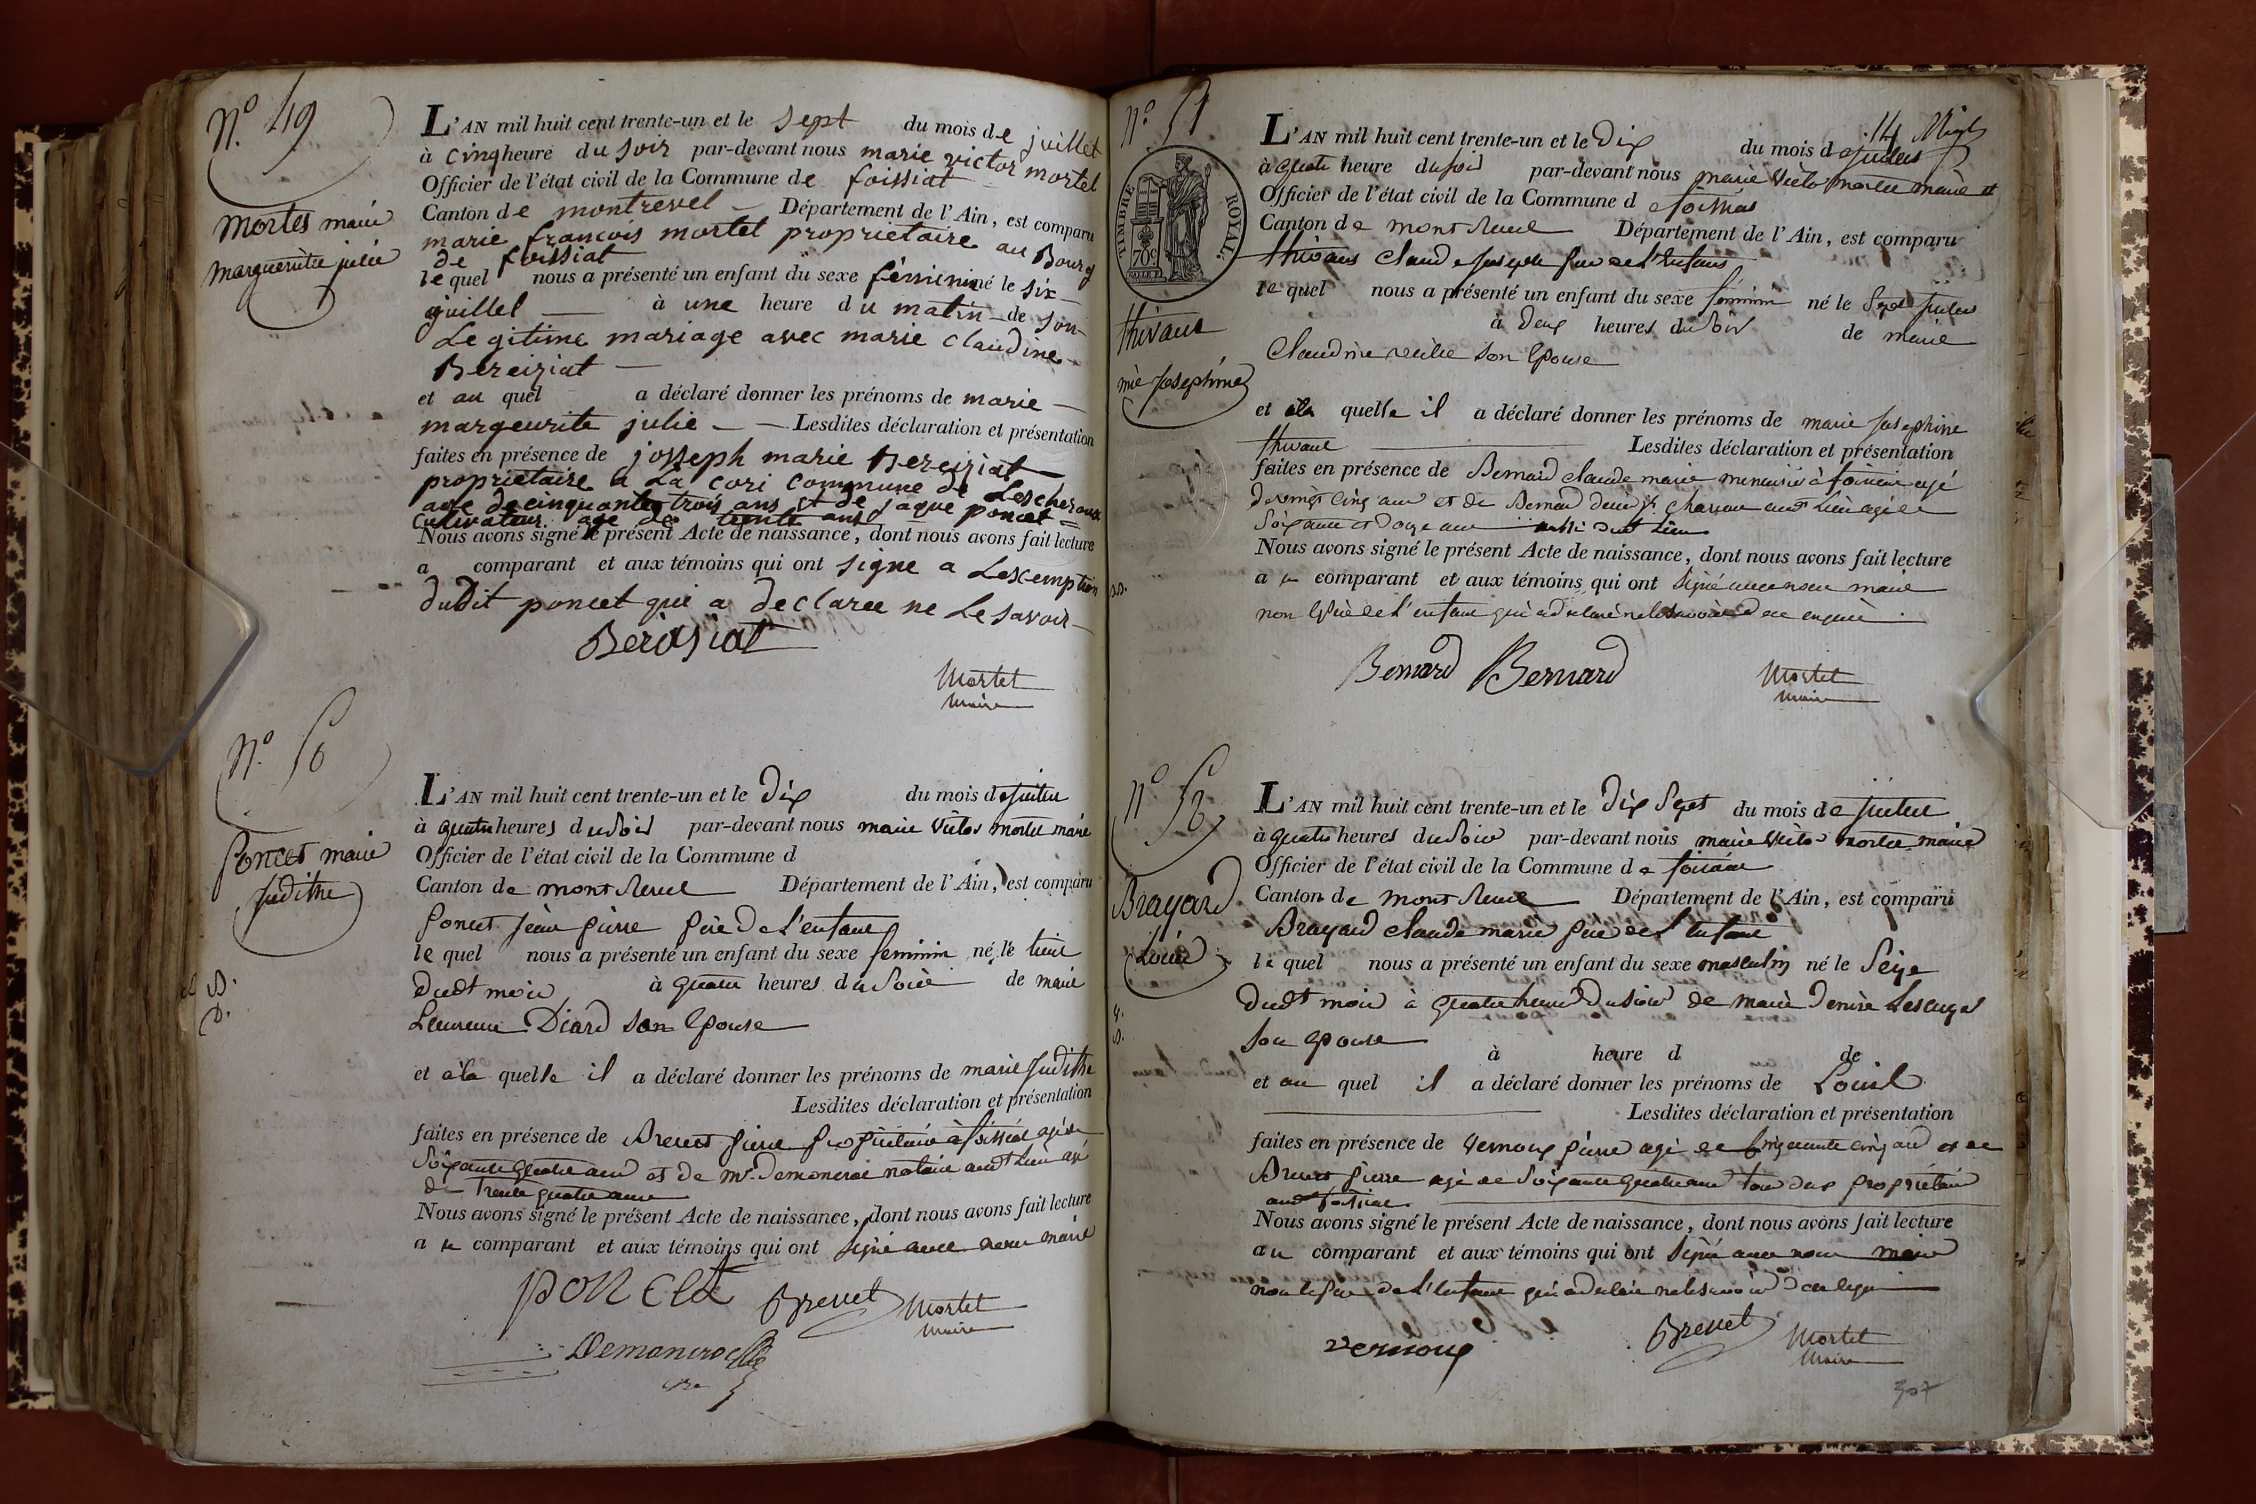 N.° 49
Mortel marie
marguerite julie
L'AN mil huit cent trente-un et le sept du mois de juillet
à cinq heure du soir par-devant nous marie victor mortel
Officier de l'état civil de la Commune de foissiat
Canton de montrevel Département de l'Ain, est comparu
marie françois mortel proprietaire au Bourg
de foissiat
le quel nous a présenté un enfant du sexe féminin né le six
juillel à une heure du matin de son
Legitime mariage avec marie claudine
Bereiziat
et au quel a déclaré donner les prénoms de marie
margeurite julie Lesdites déclaration et présentation
faites en présence de josseph marie Bereiziat
proprietaire a La cori commune de Lescheroux
age de cinquante trois ans et de jaque poncet
cultivateur age de trente ans
Nous avons signé le présent Acte de naissance, dont nous avons fait lecture
a comparant et aux témoins qui ont signe a Lexemption
dudit poncet qui a declaree ne Le savoir
Mortel
Maire
N.° 50
Poncet marie
Judithe
L'AN mil huit cent trente-un et le Dix du mois de juillet
à quatre heures du Soir par-devant nous marie victor mortel maire
Officier de l'état civil de la Commune d
Canton de montrevel Département de l'Ain, est comparu
Poncet jean pierre père De L'enfant
le quel nous a présenté un enfant du sexe feminin né le huit
dudt mois à quatre heures du Soir de marie
Laurence Diard son Epouse
et à la quelle il a déclaré donner les prénoms de marie Judithe
Lesdites déclaration et présentation
faites en présence de Brevet pierre propriétaire à foissiat agé de
Soixante quatre ans et de mr. Demoncroc notaire audt Lieu agé
de Trente quatre ans
Nous avons signé le présent Acte de naissance, dont nous avons fait lecture
a u comparant et aux témoins qui ont signé avec nous maire
PONCET Brevet Mortel
Maire
N° 51
TIMBRE ROYAL
70c
thivant
mie Josephine
L'AN mil huit cent trente-un et le Dix du mois de juillet
à quatre heure du soir par-devant nous marie victor mortel maire et
Officier de l'état civil de la Commune de foissiat
Canton de montrevel Département de l'Ain, est comparu
thivant Claude joseph père de L'enfant
le quel nous a présenté un enfant du sexe féminin né le juillet
à Deux heures du Soir de marie
Claudine son Epouse
et à la quelle il a déclaré donner les prénoms de marie Josephine
thivant Lesdites déclaration et présentation
faites en présence de Bernard claude marie menuisier à foissiat agé
de vingt cinq ans et de Bernard charron audt Lieu agé de
Soixante et Douze ans
Nous avons signé le présent Acte de naissance, dont nous avons fait lecture
a u comparant et aux témoins qui ont signé avec nous maire
non le père de L'enfant qui a déclaré ne le savoir de ce enquis
Bernard Bernard Mortel
Maire
N° 52
Brayard
Louis
L'AN mil huit cent trente-un et le Dix Sept du mois de juillet
à quatre heures du Soir par-devant nous marie victor mortel maire
Officier de l'état civil de la Commune de foissiat
Canton de montrevel Département de l'Ain, est comparu
Brayard claude marie père de L'enfant
le quel nous a présenté un enfant du sexe masculin né le Seize
dudt mois à quatre heures Du soir de marie Denise
son Epouse
à heure d de
et au quel il a déclaré donner les prénoms de Louis
Lesdites déclaration et présentation
faites en présence de Vernoux pierre agé de Cinquante cinq ans et de
Brevet pierre agé de Soixante quatre ans tous deux propriétaire
audt foissiat
Nous avons signé le présent Acte de naissance, dont nous avons fait lecture
au comparant et aux témoins qui ont signé avec nous maire
non le père de L'enfant qui a déclaré ne le savoir
vernoux Brevet Mortel
Maire
307